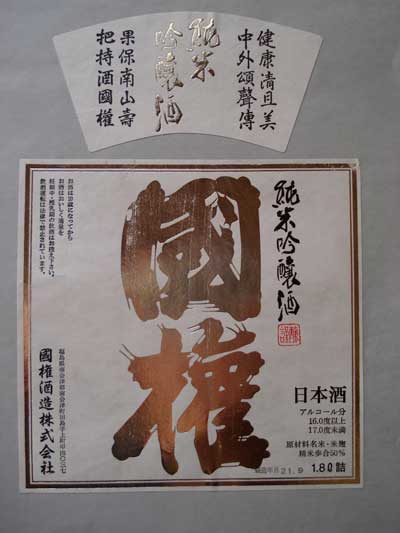 健康清且美
中外頌聲傳
純米
吟釀酒
果保南山壽
把持酒國權
純米吟釀酒
國權
日本酒
アルコール分
16.0度以上
17.0度未満
原材料名米・米麹
精米歩合50%
1.8ℓ詰
製造年月21.9
お酒は20歳になってから
お酒はおいしく適量を
妊娠中・授乳期の飲酒はお控え下さい。
飲酒運転は法律で禁止されています。
福島県南会津郡南会津町田島字上町甲四〇三七
國權酒造株式会社